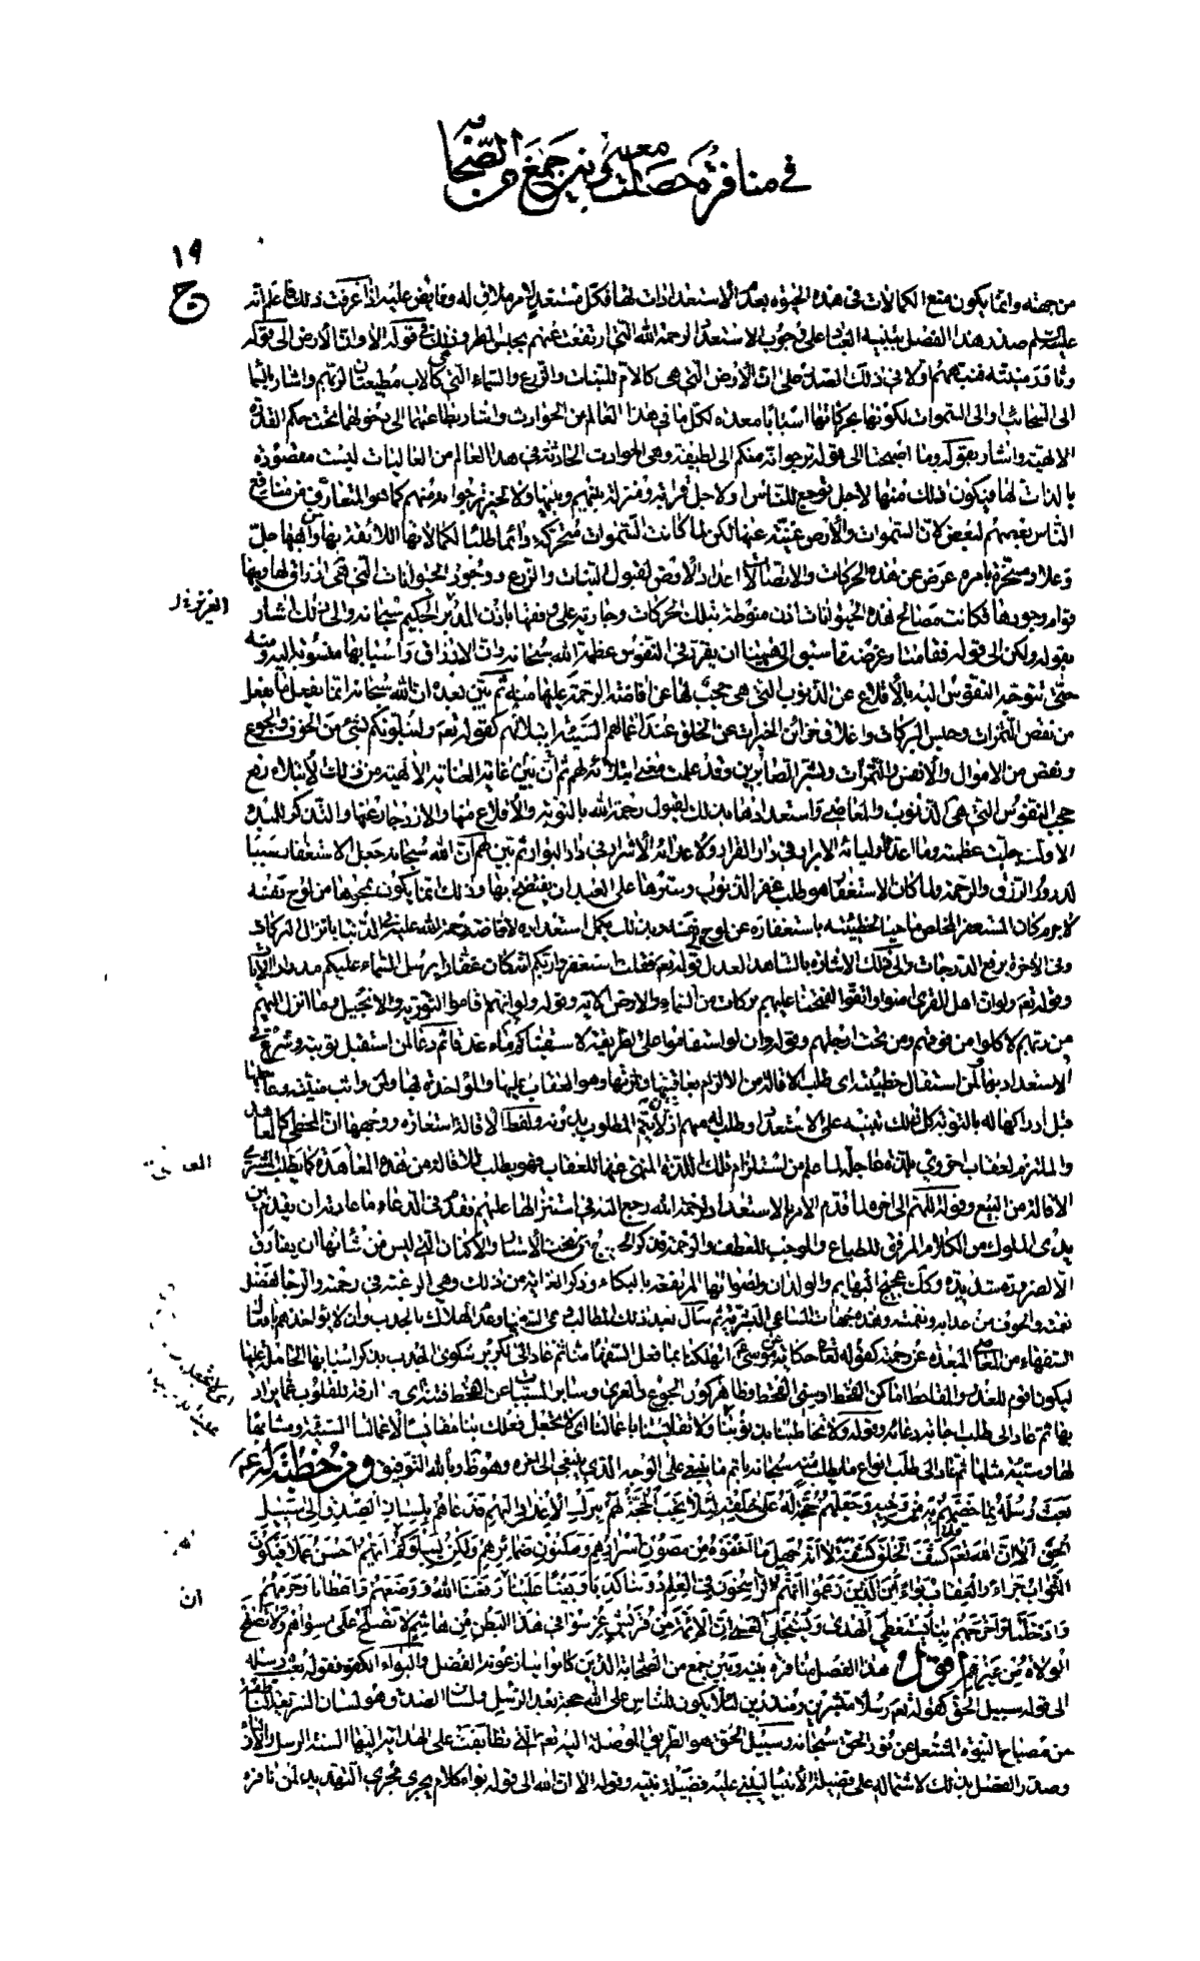 في منافرة حصلت بينه وبين جمع من الصحابة
١٩
ج
من جهته وانما يكون منع الكمالات في هذه الحيوة بعدم الاستعدادات لها فكل مستعد لامر ملاق له وفايض عليه اذا عرفت ذلك فاعلم انه
عليه السلم صدر هذا الفصل بتنبيه العباد على وجوب الاستعداد لرحمة الله التي ارتفعت عنهم بحبس المطر وذلك في قوله الا وان الارض الى قوله
الى السحائب والى السموات لكونها بحركاتها اسبابا معدة لكل ما في هذا العالم من الحوادث واشار بطاعتهما الى دخولهما تحت حكم القدرة
الالهية واشار بقوله وما اصبحتا الى قوله ترجوانه منكم الى لطيفة وهي ان الحوادث الحادثة في هذا العالم من العاليات ليست مقصودة
بالذات لها فيكون ذلك منها لاجل توجع للناس او لاجل قرابة ومنزلة بينهم وبينها ولا لخير ترجوانه منهم كما هو المتعارف من منافع
الناس بعضهم لبعض لان السموات والارض غنية عنها لكن لما كانت السموات متحركة دائما طلبا لكمالاتها اللائقة بها من واهبها جل
وعلا ومسخرة بامره عرض عن هذه الحركات والاتصالات اعداد الارض لقبول النبات والزرع ووجود الحيوانات التي هي ارزاق لها وبها
قوام وجودها فكانت مصالح هذه الحيوانات اذن منوطة بتلك الحركات وجارية على وفقها باذن المدبر الحكيم سبحانه والى ذلك اشار
بقوله ولكن الى قوله فقامتا وغرضه مما سبق الى هيهنا ان يقرر في النفوس عظمة الله سبحانه وان الارزاق واسبابها منسوبة اليه ومنه
حتى تتوجه النفوس اليه بالاقلاع عن الذنوب التي هي حجب لها عن افاضة الرحمة عليها منه ثم بين بعده ان الله سبحانه انما يفعل ما يفعل
من نقص الثمرات وحبس البركات واغلاق خزائن الخيرات عن الخلق عند اعمالهم السيئة ابتلاء لهم كقوله تعم ولنبلونكم بشيء من الخوف والجوع
ونقص من الاموال والانفس والثمرات وبشر الصابرين وقد علمت معنى ابتلائه لهم ثم بين ان غاية العناية الالهية من ذلك الابتلاء رفع
حجب النفوس التي هي الذنوب والمعاصي واستعدادها بذلك لقبول رحمة الله بالتوبة والاقلاع عنها والازدجار عنها والتذكر للمبدء
الاول جلت عظمته وما اعد لاوليائه الابرار في دار القرار ولاعدائه الاشرار في دار البوار ثم بين لهم ان الله سبحانه جعل الاستغفار سببا
لدرور الرزق والرحمة ولما كان الاستغفار هو طلب غفر الذنوب وسترها على العبد ان يفتضح بها وذلك انما يكون بمحوها من لوح نفسه
لا جرم كان المستغفر المخلص ماحيا لخطيئته باستغفاره عن لوح نفسه وبذلك يكمل استعداده لافاضة رحمة الله عليه في الدنيا بانزال البركات
وفي الاخرة برفع الدرجات والى ذلك الاشارة بالشاهد العدل قوله تعم فقلت استغفروا ربكم انه كان غفارا يرسل السماء عليكم مدرارا الايات
وقوله تعم ولو ان اهل القرى امنوا واتقوا لفتحنا عليهم بركات من السماء والارض الاية وقوله ولو انهم اقاموا التورية والانجيل وما انزل اليهم
من ربهم لاكلوا من فوقهم ومن تحت ارجلهم وقوله وان لو استقاموا على الطريقة لاسقيناهم ماء غدقا ثم دعا لمن استقبل توبته وشرع في
الاستعداد بها ولمن استقال خطيئته اى طلب الاقالة من الالزام بعاقبتها وثمرتها وهو العقاب عليها والمؤاخذة بها ولمن بادر منيته وعاجلها
قبل ادراكها له بالتوبة كل ذلك تنبيه على الاستعداد وطلب له منهم اذ لا يتم المطلوب بدونه ولفظ الاقالة استعارة ووجهها ان المخطي كالمعاهد
والملتزم لعقاب اخروي بلذة عاجلة لما علم من استلزام تلك اللذة المنهي عنها للعقاب فهو يطلب للاقالة من هذه المعاهدة كما يطلب المشتري
الاقالة من البيع وقوله اللهم الى اخره لما قدم الامر بالاستعداد لرحمة الله رجع اليه في استنزالها عليهم فقدم في الدعاء ما عادته ان يقدم بين
يدى الملوك من الكلام المرقق للطباع والموجب للعطف والرحمة فذكر الخروج من تحت الاستار والاكنان التي ليس من شانها ان يفارق
الا لضرورة شديدة وكذلك عجيج البهايم والولدان واصواتها المرتفعة بالبكاء وذكر الغاية من ذلك وهي الرغبة في رحمته والرجاء لفضل
نعمته والخوف من عذابه ونقمته وهذه جهات المساعي البشرية ثم سأل بعد ذلك المطالب وهي السقيا وعدم الهلاك بالجدب وان لا يؤاخذهم بافعال
السفهاء من المعاصي المبعدة عن رحمته كقوله تعالى حكاية عن موسى ع اتهلكنا بما فعل السفهاء منا ثم عاد الى تكرير شكوى الجدب بذكر اسبابها الحاملة عليها
ليكون اقوم للعذر والمقاحط اماكن القحط او سني القحط وظاهر كون الجوع والعرى وساير المسببات عن القحط
بها ثم عاد الى طلب اجابة دعائه وقوله ولا تخاطبنا بذنوبنا ولا تقايسنا باعمالنا اى لا تجعل فعلك بنا مقايسا لاعمالنا السيئة ومشابها
لها وسيئة مثلها ثم عاد الى طلب انواع ما يطلب منه سبحانه باتم ما ينبغي على الوجه الذي ينبغي الى اخره وهو ظ وبالله التوفيق ومن خطبة له ع
بعث رسله بما خصهم به من وحيه وجعلهم حجة له على خلقه لئلا تجب الحجة لهم بترك الاعذار اليهم فدعاهم بلسان الصدق الى سبيل
الحق الا ان الله تعم كشف الخلق كشفة لا انه جهل ما اخفوه من مصون اسرارهم ومكنون ضمائرهم ولكن ليبلوهم ايهم احسن عملا فيكون
الثواب جزاء والعقاب بواء اين الذين زعموا انهم الراسخون في العلم دوننا كذبا وبغيا علينا ان رفعنا الله ووضعهم واعطانا وحرمهم
وادخلنا واخرجهم بنا يستعطى الهدى ويستجلى العمى ان الائمة من قريش غرسوا في هذا البطن من هاشم لا تصلح على سواهم ولا تصلح
الولاة من غيرهم اقول هذا الفصل منافرة بينه وبين جمع من الصحابة الذين كانوا ينازعونه الفضل والبواء الكفو فقوله بعث رسله
الى قوله سبيل الحق كقوله تعم رسلا مبشرين ومنذرين لئلا يكون للناس على الله حجة بعد الرسل ولسان الصدق هو لسان الشريعة الناطقة
من مصباح النبوة المشتعل عن نور الحق سبحانه وسبيل الحق هو الطريق الموصلة اليه تعم التي تطابقت على الهداية اليها السنة الرسل والاولياء
وصدر الفصل بذلك لاشتماله على فضيلة الانبياء ليبني عليه فضيلة نبيه وقوله الا ان الله الى قوله بواء كلام يجري مجرى التهديد لمن نافره